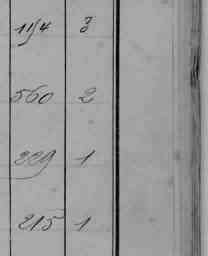 1154 3
560 2
229 1
215 1